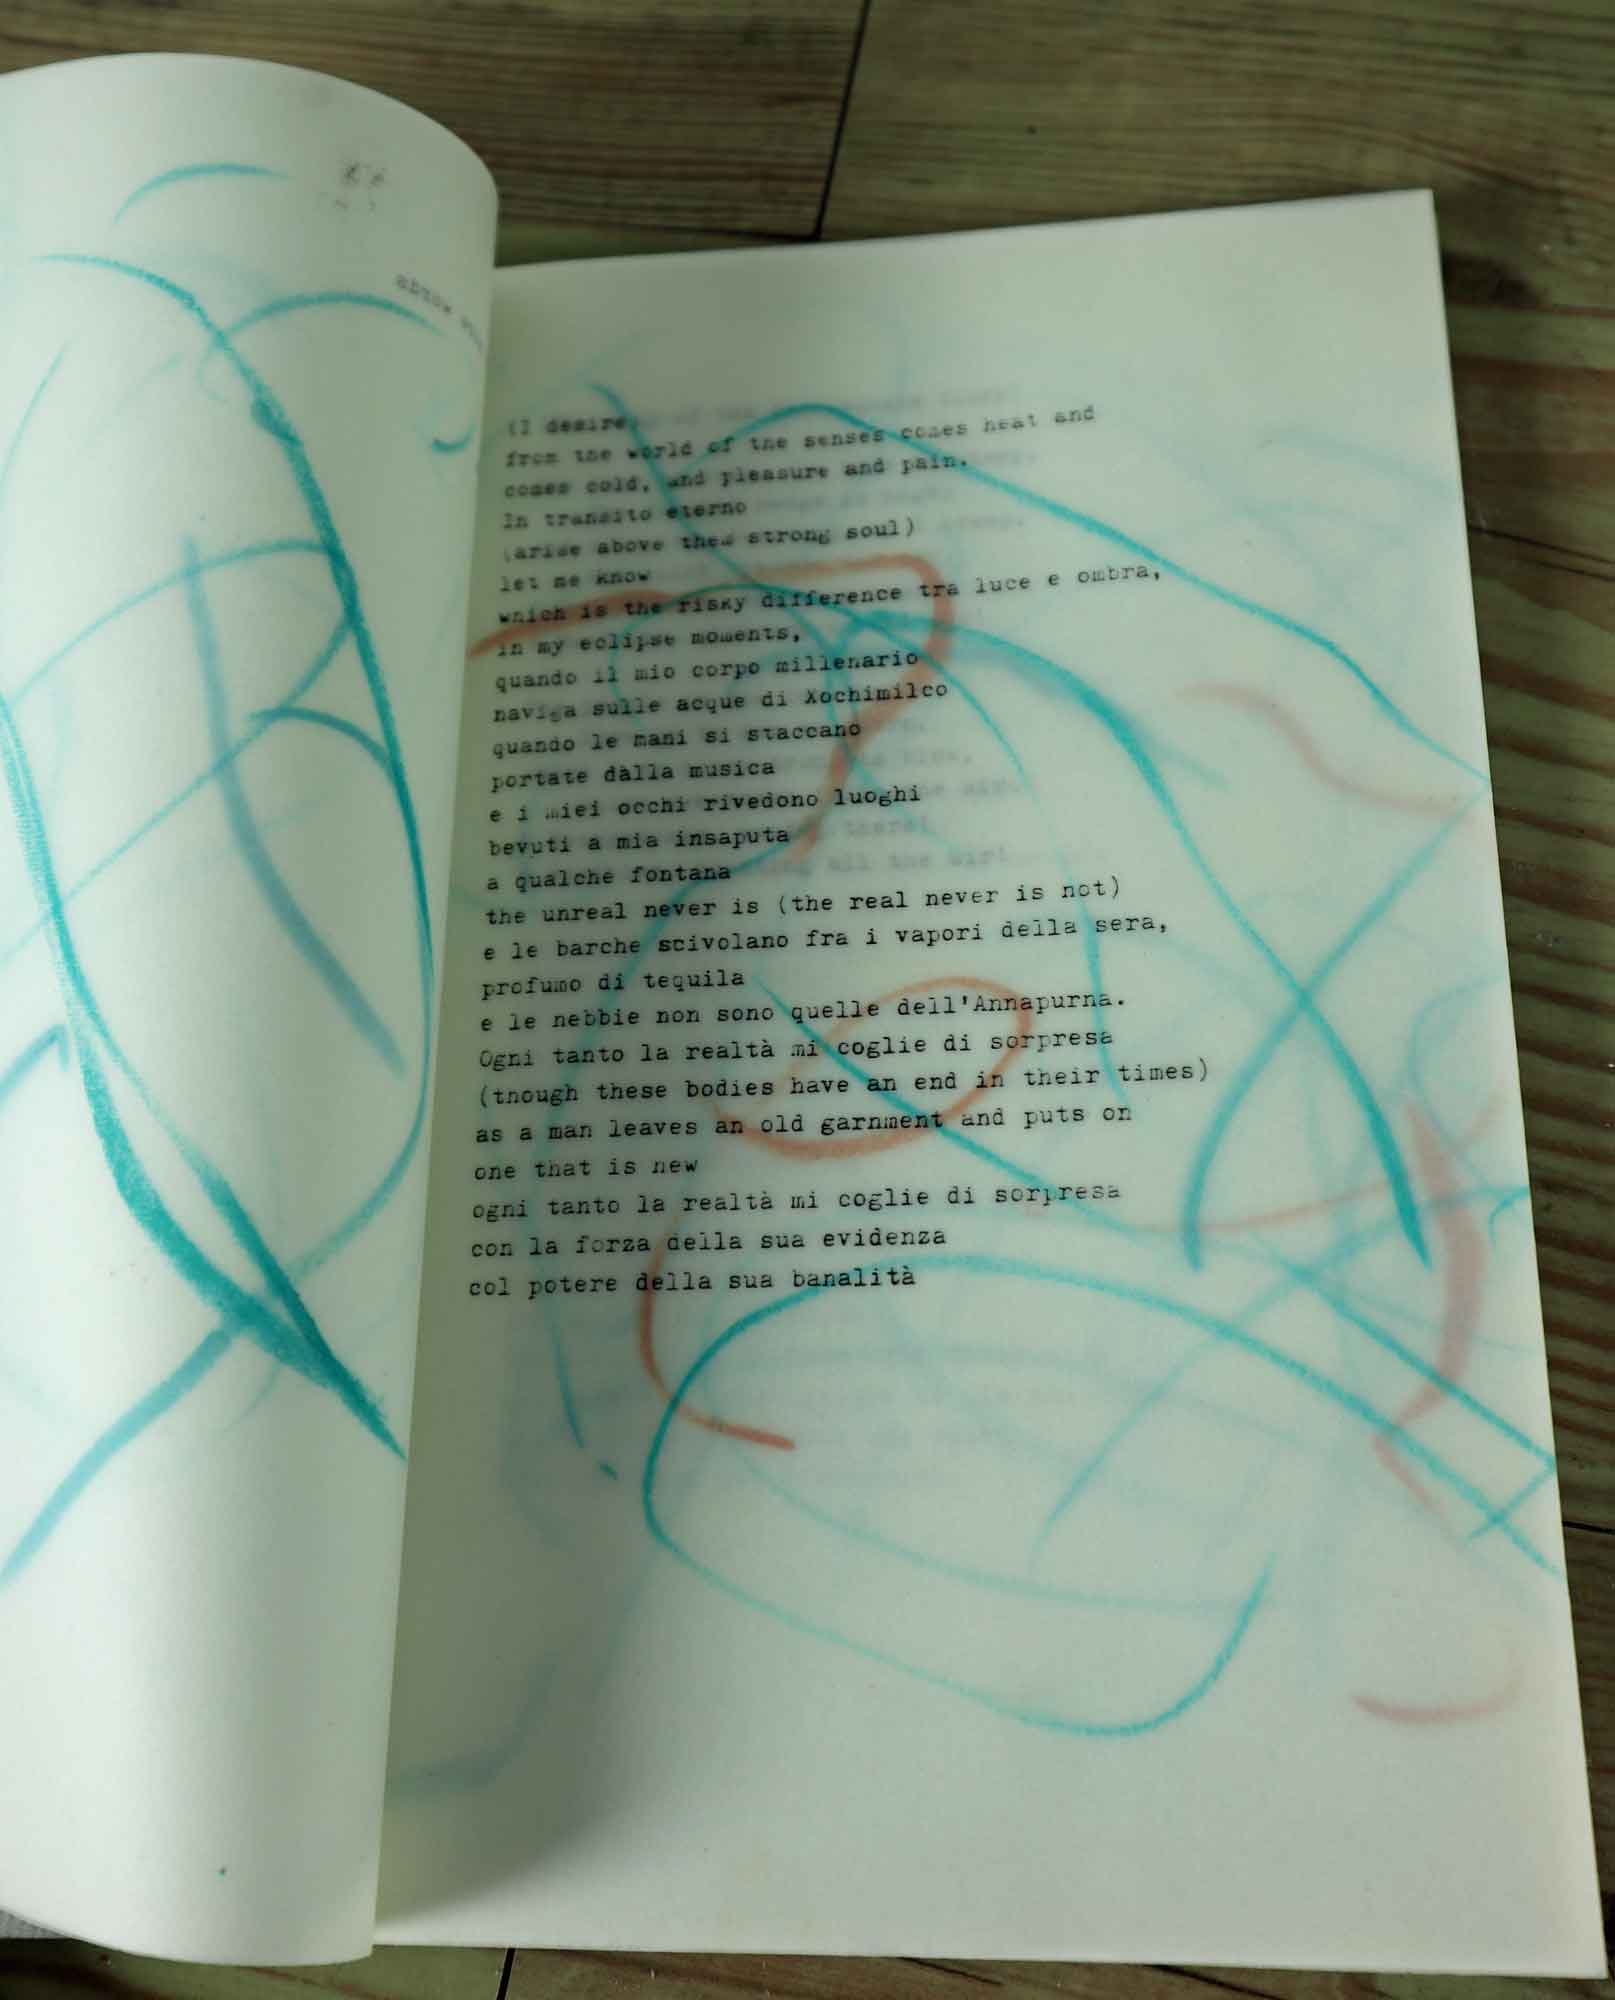 (I desire,
from the world of the senses comes heat and
comes cold, and pleasure and pain.
In transito eterno
(arise above them strong soul)
let me know
which is the risky difference tra luce e ombra,
in my eclipse moments,
quando il mio corpo millenario
naviga sulle acque di Xochimilco
quando le mani si staccano
portate dàlla musica
e i miei occhi rivedono luoghi
bevuti a mia insaputa
a qualche fontana
the unreal never is (the real never is not)
e le barche scivolano fra i vapori della sera,
profumo di tequila
e le nebbie non sono quelle dell'Annapurna.
Ogni tanto la realtà mi coglie di sorpresa
(tnough these bodies have an end in their times)
as a man leaves an old garnment and puts on
one that is new
ogni tanto la realtà mi coglie di sorpresa
con la forza della sua evidenza
col potere della sua banalità